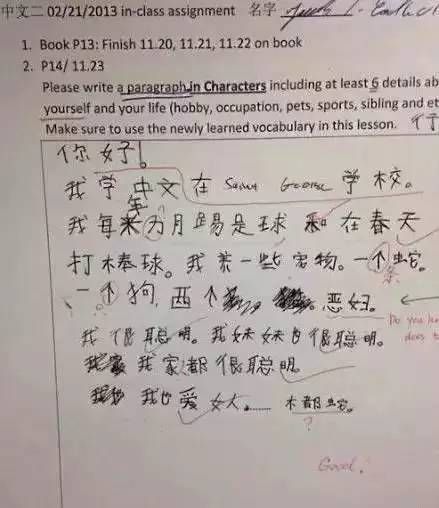 中文二 02/21/2013 in-class assignment 名字
1. Book P13: Finish 11.20, 11.21, 11.22 on book
2. P14/ 11.23
Please write a paragraph in Characters including at least 6 details ab
yourself and your life (hobby, occupation, pets, sports, sibling and et
Make sure to use the newly learned vocabulary in this lesson.
你好!
我学中文在 Saint George 学校。
年
我每 九月踢足球 和 在春天
打棒球。我养一些宠物。一个蛇。
条
一个狗,两个 。恶妇。
Do you
does
我很聪明。我妹妹也很聪明。
我家都很聪明。
我也爱女人…… 木都蛇。
?
Good!